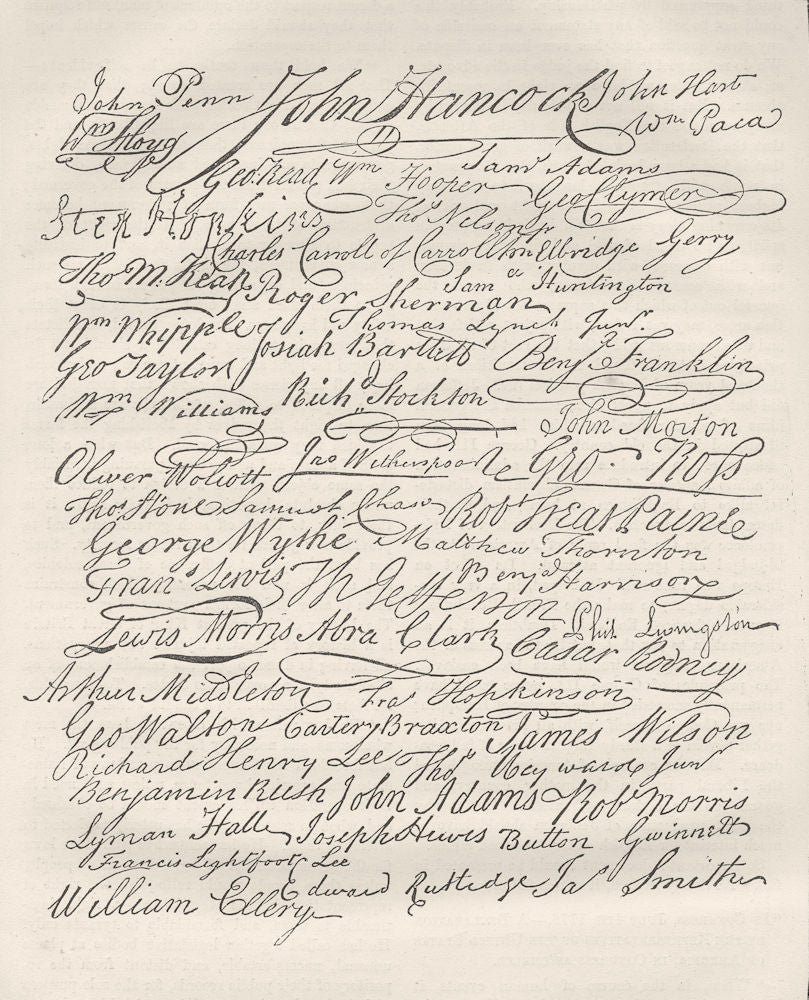 John Penn John Hancock John Hart
Wm Floyd Wm Paca
Geo. Read Wm Hooper Saml Adams
Geo Clymer
Step Hopkins Thos Nelson jr
Charles Carroll of Carrollton Elbridge Gerry
Tho M. Kean Roger Sherman Sam el Huntington
Wm Whipple Thomas Lynch Junr.
Geo Taylor Josiah Bartlett Benja Franklin
Wm Williams Richd Stockton
John Morton
Oliver Wolcott Jno Witherspoon Geo. Ross
Thos Stone Samuel Chase Robt Treat Paine
George Wythe Matthew Thornton
Frans Lewis Th Jefferson Benja Harrison
Lewis Morris Abra Clark Phil. Livingston
Cæsar Rodney
Arthur Middleton Fra Hopkinson
Geo Walton Carter Braxton James Wilson
Richard Henry Lee Thos Heyward Junr
Benjamin Rush John Adams Robt Morris
Lyman Hall Joseph Hewes Button Gwinnett
Francis Lightfoot Lee
William Ellery Edward Rutledge Jas Smith